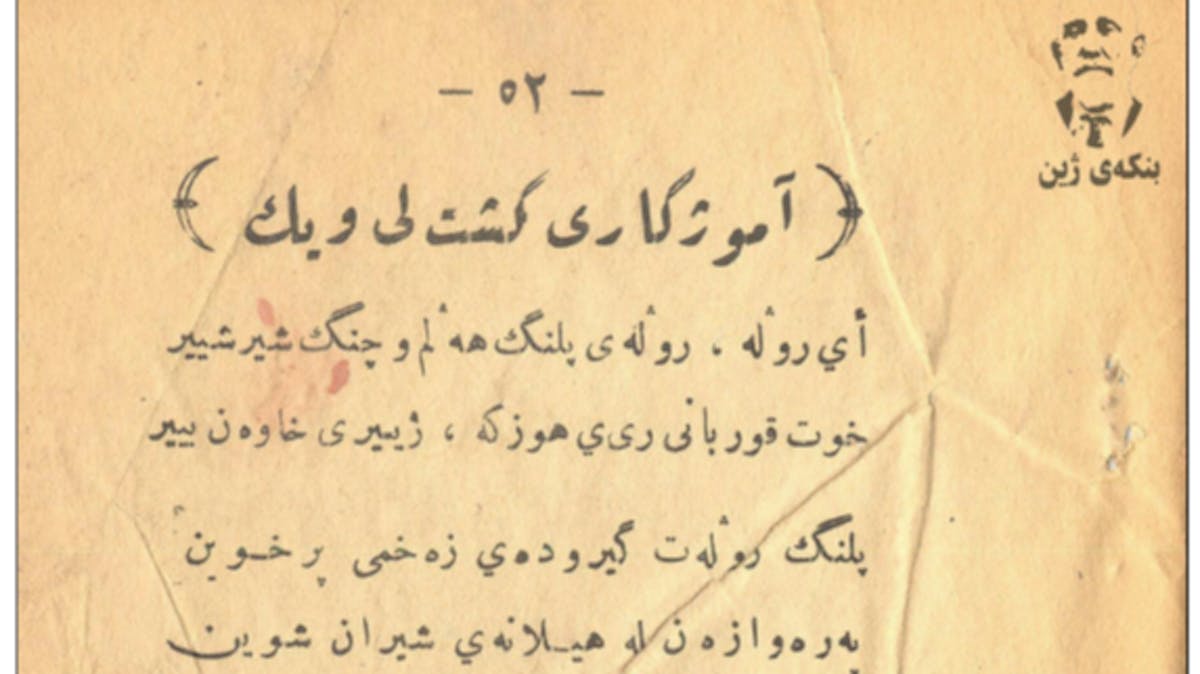 — ٥٢ —
بنکەی ژین
﴿ آموژگاری گشت لی ویك ﴾
أي روٚلە ، روٚلەی پلنگ هەلٚم و چنگ شیر شییر
خوت قوربانی ریي هوزکە ، ژییری خاوەن بییر
پلنگ روٚلەت گیرودەي زەخمی پر خوین
پەرەوازەن لە هیلانەي شیران شوین